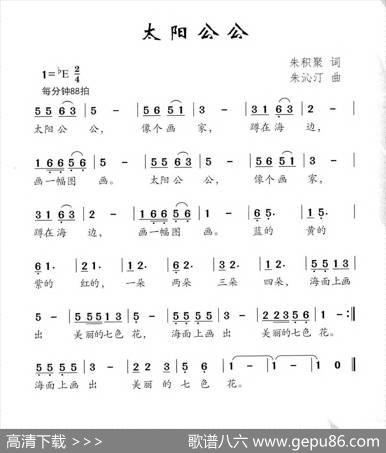 太阳公公
朱积聚 词
1=♭E 2/4
朱沁汀 曲
每分钟88拍
5 5 6 3 | 5 - | 5 6 5 1 | 3 - | 3 1 6 3 | 2 - |
太阳公 公， 像个画 家， 蹲在海 边，
1 6 6 5 5 6 | 1 - | 5 5 6 3 | 5 - | 5 6 5 1 | 3 - |
画一幅图 画。 太阳公 公， 像个画 家，
3 1 6 3 | 2 - | 1 6 6 5 5 6 | 1 - | 6· 5· | 1 5· |
蹲在海 边， 画一幅图 画。 蓝的 黄的
紫的 红的， 一朵 两朵 三朵 四朵， 海面上画
出 美丽的七色 花， 海面上画 出 美丽的七色 花，
海面上画 出 美丽 的七色 花。
高清下载 >>>
歌谱八六 www.gepu86.com